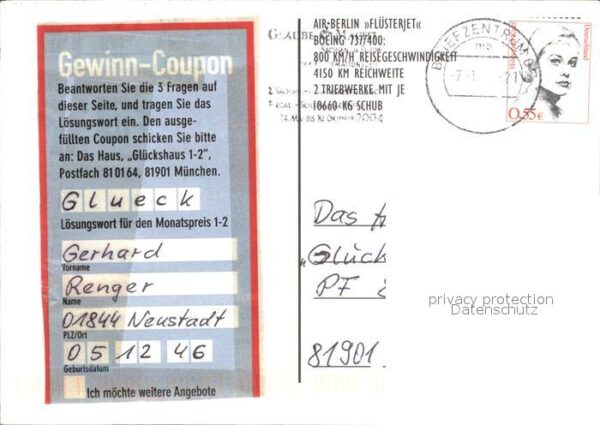 Gewinn-Coupon
Beantworten Sie die 3 Fragen auf
dieser Seite, und tragen Sie das
Lösungswort ein. Den ausge-
füllten Coupon schicken Sie bitte
an: Das Haus, „Glückshaus 1-2",
Postfach 81 01 64, 81901 München.
Glueck
Lösungswort für den Monatspreis 1-2
Gerhard
Vorname
Renger
Name
01844 Neustadt
PLZ/Ort
05 12 46
Geburtsdatum
Ich möchte weitere Angebote
AIR-BERLIN »FLÜSTERJET«
BOEING 737/400:
800 KM/H REISEGESCHWINDIGKEIT
4150 KM REICHWEITE
2 TRIEBWERKE MIT JE
10660 KG SCHUB
2004
BRIEFZENTRUM
mb
Deutschland
0,55€
Das
„Glück
PF
81901
privacy protection
Datenschutz